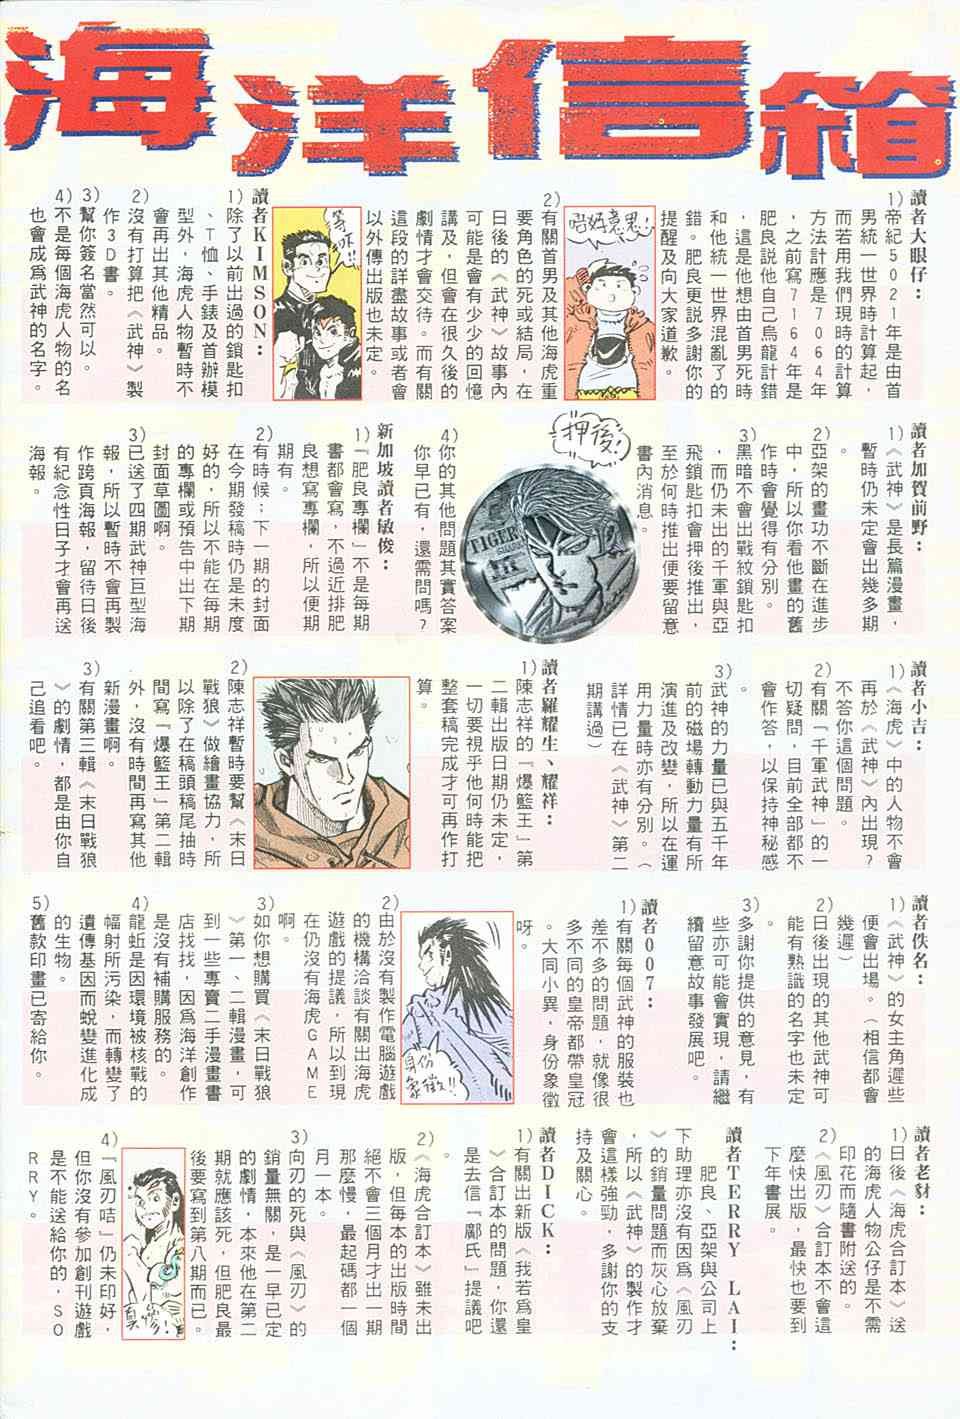 海洋信箱
讀者大眼仔：
1)帝紀5021年是由首
男統一世界時計算起，
而若用我們現時的計算
方法計應是7064年
，之前寫7164年是
肥良說他自己烏龍計錯
，這是他想由首男死時
和他統一世界混亂了的
錯。肥良更說多謝你的
提醒及向大家道歉。
唔好意思！
2)有關首男及其他海虎重
要角色的死或結局，在
日後的《武神》故事內
可能是會有少少的回憶
講及，但會在很久後的
劇情才會交待。而有關
這段的詳盡故事或者會
以外傳出版也未定。
等吓!!
讀者KIMSON：
1)除了以前出過的鎖匙扣
、T恤、手錶及首辦模
型外，海虎人物暫時不
會再出其他精品。
2)沒有打算把《武神》製
作3D書。
3)幫你簽名當然可以。
4)不是每個海虎人物的名
也會成爲武神的名字。
讀者加賀前野：
1)《武神》是長篇漫畫，
暫時仍未定會出幾多期
。
2)亞架的畫功不斷在進步
中，所以你看他畫的舊
作時會覺得有分別。
3)黑暗不會出戰紋鎖匙扣
，而仍未出的千軍與亞
飛鎖匙扣會押後推出，
至於何時推出便要留意
書內消息。
押後!
TIGER
SHARK
III
4)你的其他問題其實答案
你早已有，還需問嗎？
新加坡讀者敏俊：
1)「肥良專欄」不是每期
書都會寫，不過近排肥
良想寫專欄，所以便期
期有。
2)有時候；下一期的封面
在今期發稿時仍是未度
好的，所以不能在每期
的專欄或預告中出下期
封面草圖啊。
3)已送了四期武神巨型海
報，所以暫時不會再製
作跨頁海報，留待日後
有紀念性日子才會再送
海報。
讀者小吉：
1)《海虎》中的人物不會
再於《武神》內出現？
不答你這個問題。
2)有關「千軍武神」的一
切疑問，目前全部都不
會作答，以保持神秘感
。
3)武神的力量已與五千年
前的磁場轉動力量有所
演進及改變，所以在運
用力量時亦有分別。（
詳情已在《武神》第二
期講過）
讀者羅耀生、耀祥：
1)陳志祥的『爆籃王』第
二輯出版日期仍未定，
一切要視乎他何時能把
整套稿完成才可再作打
算。
2)陳志祥暫時要幫《末日
戰狼》做繪畫協力，所
以除了在稿頭稿尾抽時
間寫『爆籃王』第二輯
外，沒有時間再寫其他
新漫畫啊。
3)有關第三輯《末日戰狼
》的劇情，都是由你自
己追看吧。
讀者佚名：
1)《武神》的女主角遲些
便會出場。（相信都會
幾遲）
2)日後出現的其他武神可
能有熟識的名字也未定
。
3)多謝你提供的意見，有
些亦可能會實現，請繼
續留意故事發展吧。
讀者007：
1)有關每個武神的服裝也
差不多的問題，就像很
多不同的皇帝都帶皇冠
。大同小異，身份象徵
呀。
身份象徵!!
2)由於沒有製作電腦遊戲
的機構洽談有關出海虎
遊戲的提議，所以到現
在仍沒有海虎GAME
啊。
3)如你想購買《末日戰狼
》第一、二輯漫畫，可
到一些專賣二手漫畫書
店找找，因爲海洋創作
是沒有補購服務的。
4)龍蚯是因環境被核戰的
幅射所污染，而轉變了
遺傳基因而蛻變進化成
的生物。
5)舊款印畫已寄給你
讀者老豺：
1)日後《海虎合訂本》送
的海虎人物公仔是不需
印花而隨書附送的。
2)《風刃》合訂本不會這
麼快出版，最快也要到
下年書展。
讀者TERRY LAI：
肥良、亞架與公司上
下助理亦沒有因爲《風刃
》的銷量問題而灰心放棄
，所以《武神》的製作才
會這樣強勁，多謝你的支
持及關心。
讀者DICK：
1)有關出新版《我若爲皇
》合訂本的問題，你還
是去信『鄺氏』提議吧
。
2)《海虎合訂本》雖未出
版，但每本的出版時間
絕不會三個月才出一期
那麼慢，最起碼都一個
月一本。
3)向刃的死與《風刃》的
銷量無關，是一早已定
的劇情，本來他在第二
期就應該死，但肥良最
後要寫到第八期而已。
真慘!
4)『風刃咭』仍未印好，
但你沒有參加創刊遊戲
是不能送給你的，SO
RRY。